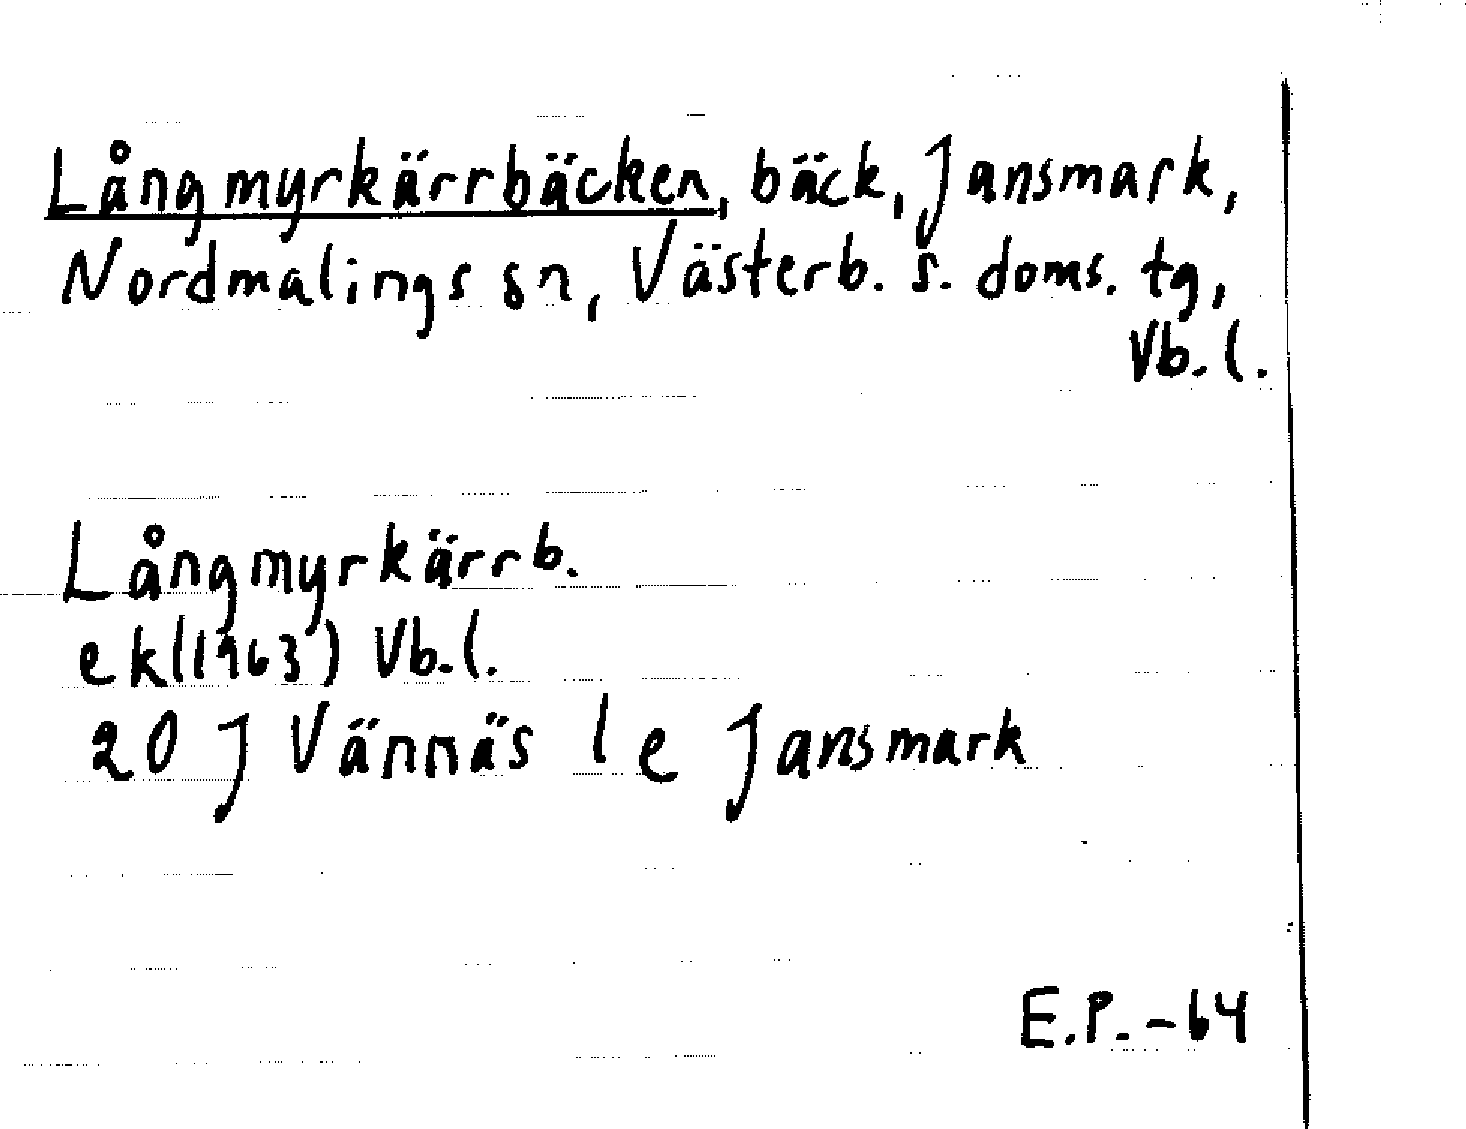 Långmyrkärrbäcken, bäck, Jansmark,
Nordmalings sn, Västerb. s. doms. tg,
Vb. l.
Långmyrkärrb.
ek(1963) Vb. l.
20 J Vännäs l e Jansmark
E.P. -64